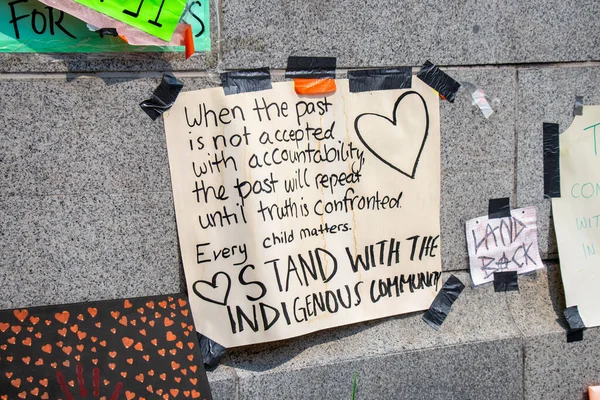 FOR
When the past
is not accepted
with accountability,
the past will repeat
until truth is confronted.
Every child matters.
STAND WITH THE
INDIGENOUS COMMUNITY
LAND
BACK
CON
WIT
IN